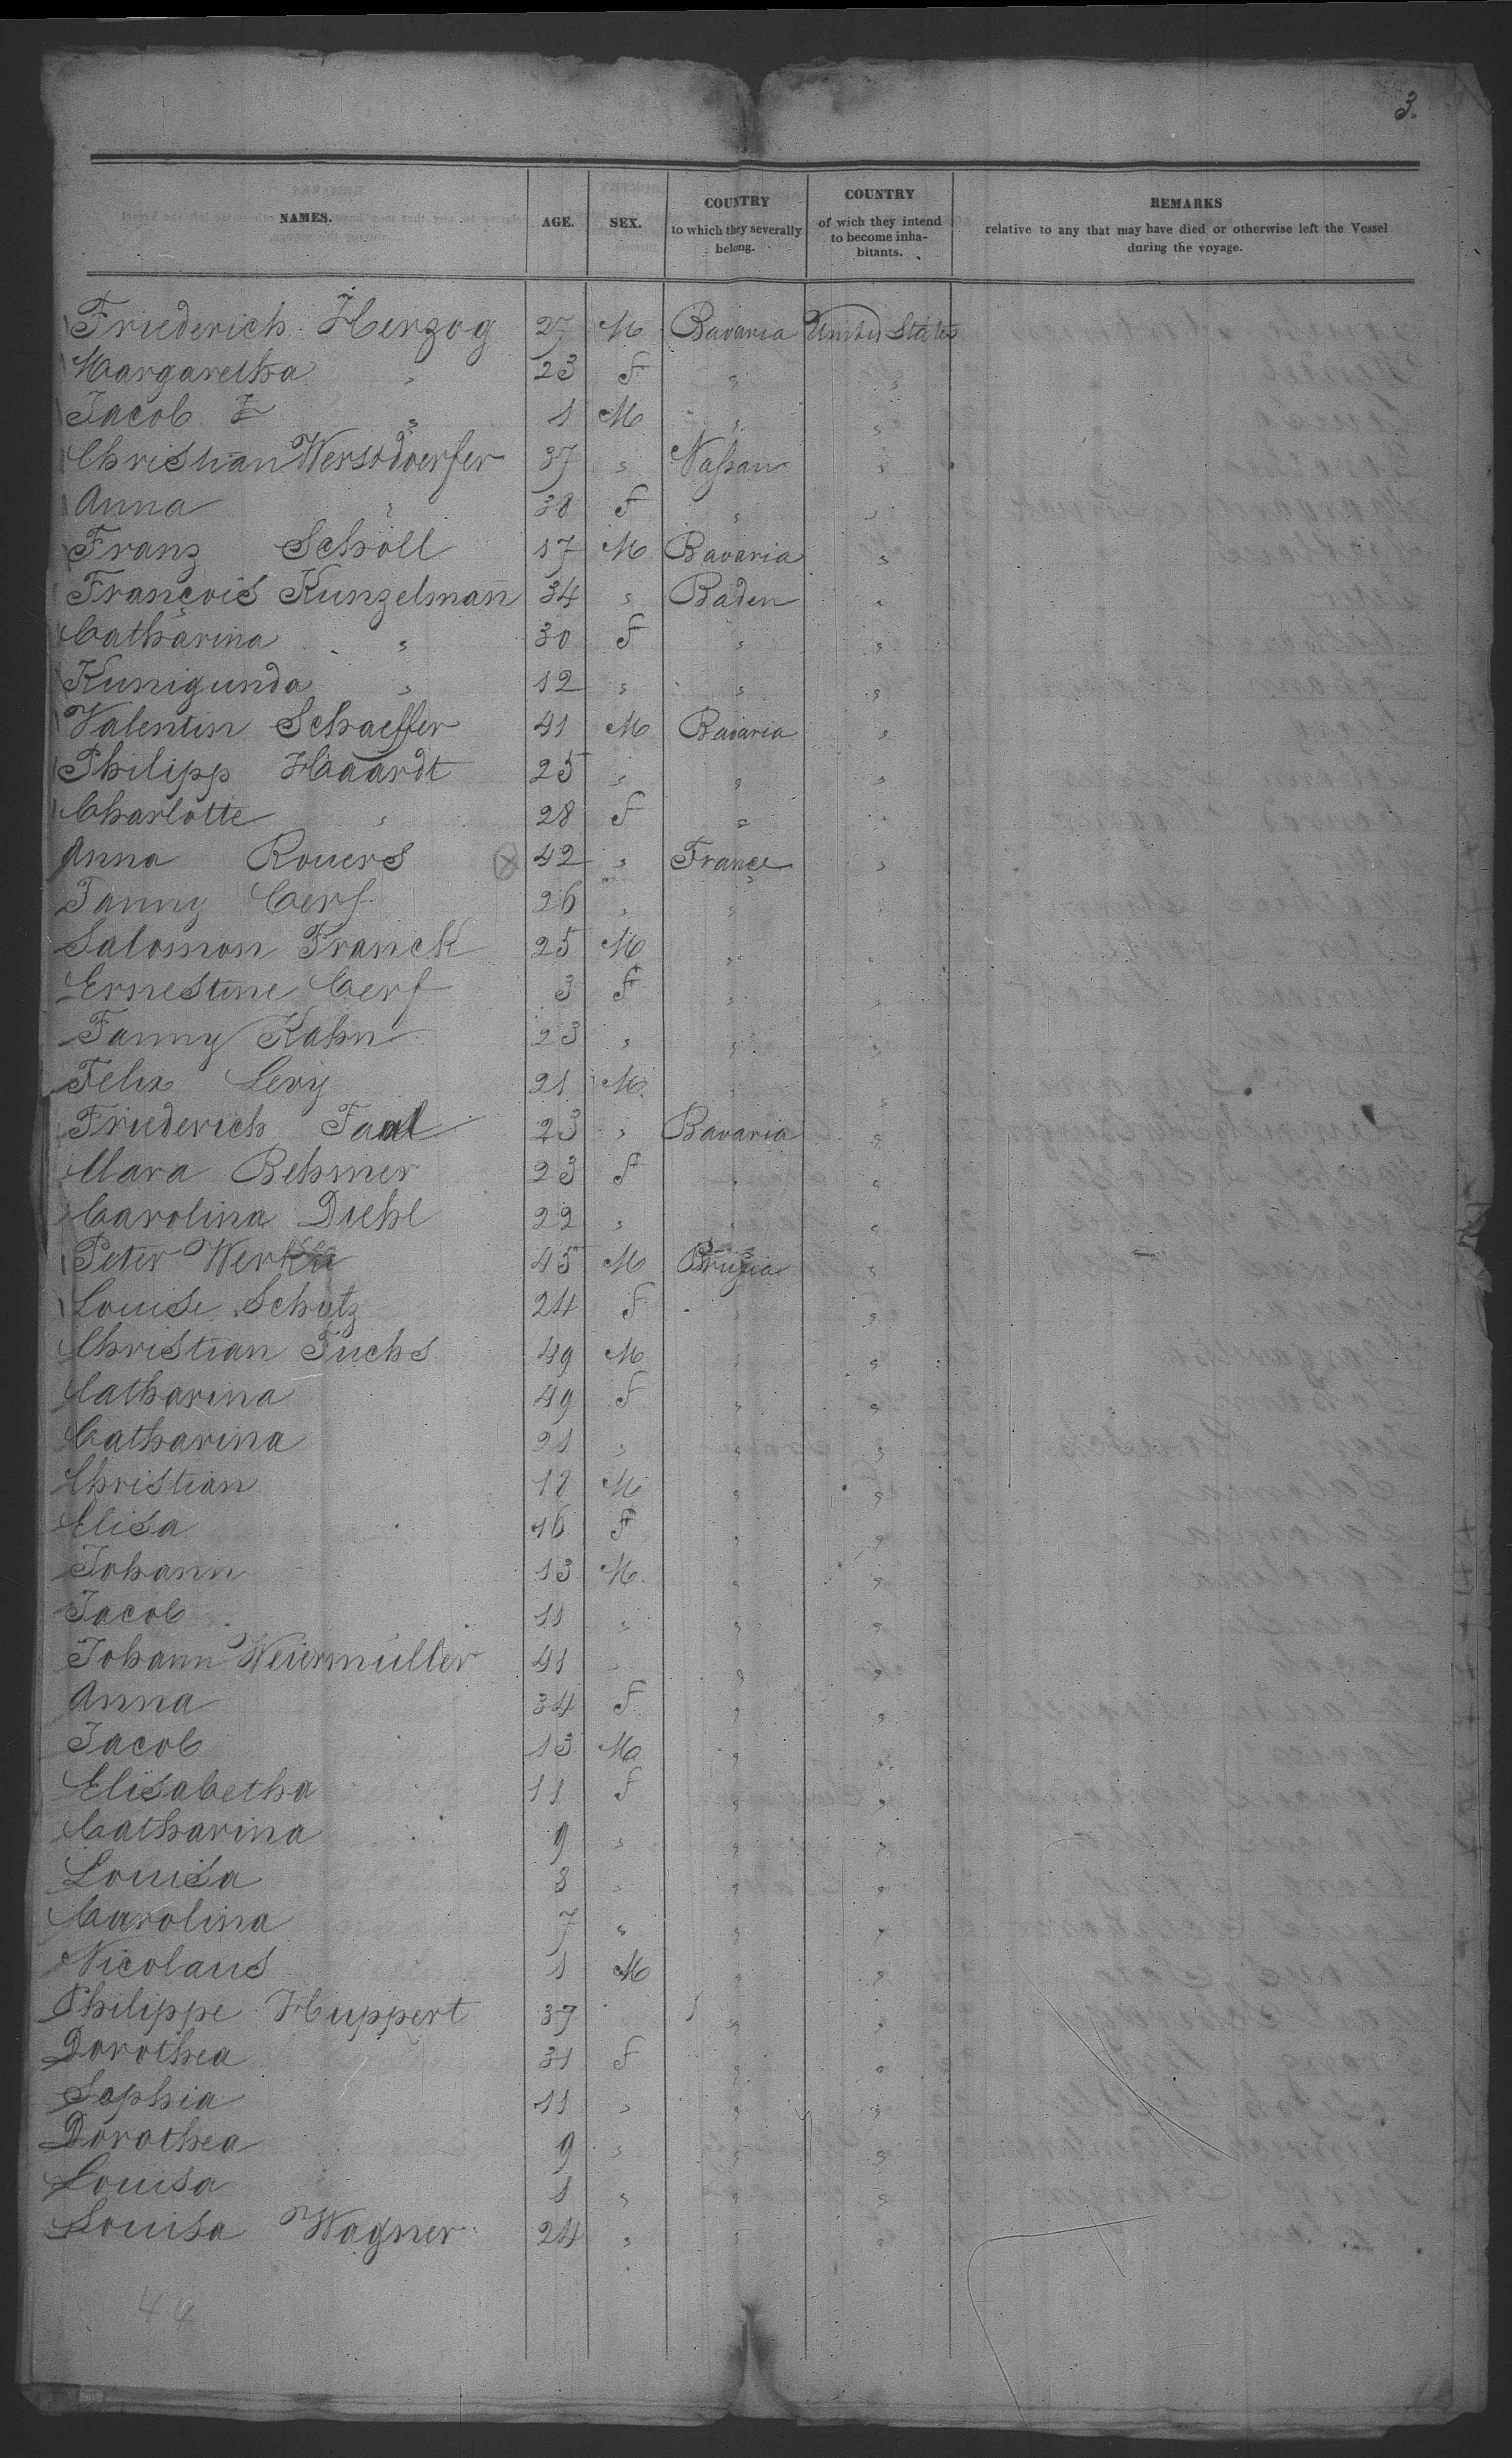 3.
NAMES. AGE. SEX. COUNTRY to which they severally belong. COUNTRY of wich they intend to become inhabitants. REMARKS relative to any that may have died or otherwise left the Vessel during the voyage.
Friederich Herzog 27 M Bavaria United States
Margaretha " 23 F " "
Jacob " 1 M " "
Christian Wersdoerfer 37 " Naßau "
Anna " 38 F " "
Franz Scholl 17 M Bavaria "
François Kunzelmann 34 " Baden "
Catharina " 30 F " "
Kunigunda " 12 " " "
Valentin Schaeffer 41 M Bavaria "
Philipp Haardt 25 " " "
Charlotte " 28 F " "
Anna Rouers 42 " France "
Fanny Cerf 26 " " "
Salomon Franck 25 M " "
Ernestine Cerf 3 F " "
Fanny Kahn 23 " " "
Felix Levy 21 M " "
Friederich Faal 23 " Bavaria "
Clara Behmer 23 F " "
Carolina Diehl 22 " " "
Peter Werkle 45 M Prußia "
Louise Schutz 24 F " "
Christian Fuchs 49 M " "
Catharina 49 F " "
Catharina 21 " " "
Christian 18 M " "
Elisa 16 F " "
Johann 13 M " "
Jacob 11 " " "
Johann Weiermuller 41 " " "
Anna 34 F " "
Jacob 13 M " "
Elisabetha 11 F " "
Catharina 9 " " "
Louisa 8 " " "
Carolina 7 " " "
Nicolaus 1 M " "
Philippe Huppert 37 " "
Dorothea 31 F " "
Sophia 11 " " "
Dorothea 9 " " "
Louisa 1 " " "
Louisa Wagner 24 " " "
44